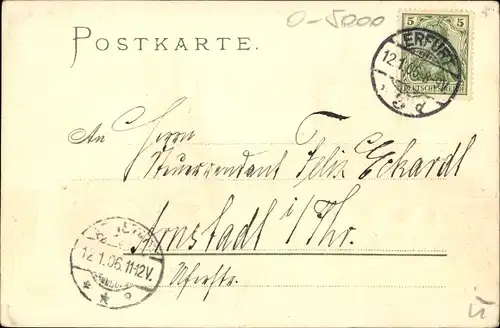 0-5000
POSTKARTE.
5
DEUTSCHES REICH
ERFURT
12.1.06.
d
An Herrn
Steuerrendant Felix Eckardt
Arnstadt i/Thr.
Uferstr.
12.1.06.11-12V.